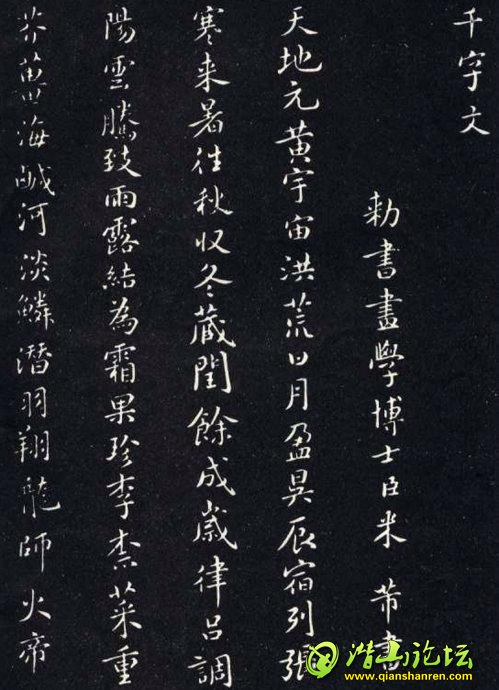 千字文
勅書畫學博士臣米芾書
天地元黃宇宙洪荒日月盈昃辰宿列張
寒来暑往秋収冬藏閏餘成歲律呂調
陽雲騰致雨露結為霜果珍李柰菜重
芥薑海鹹河淡鱗潛羽翔龍師火帝
潜山论坛
www.qianshanren.com